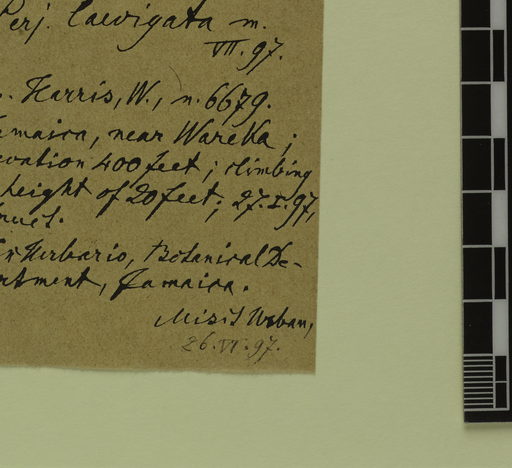 Perj. laevigata m.
VII. 97.
. Harris, W., n. 6679.
amaica, near Wareka;
evation 400 feet; climbing
height of 20 feet; 27.I.97,
Ex Herbario, Botanical De-
rtment, Jamaica.
Misit Urban,
26.VI.97.